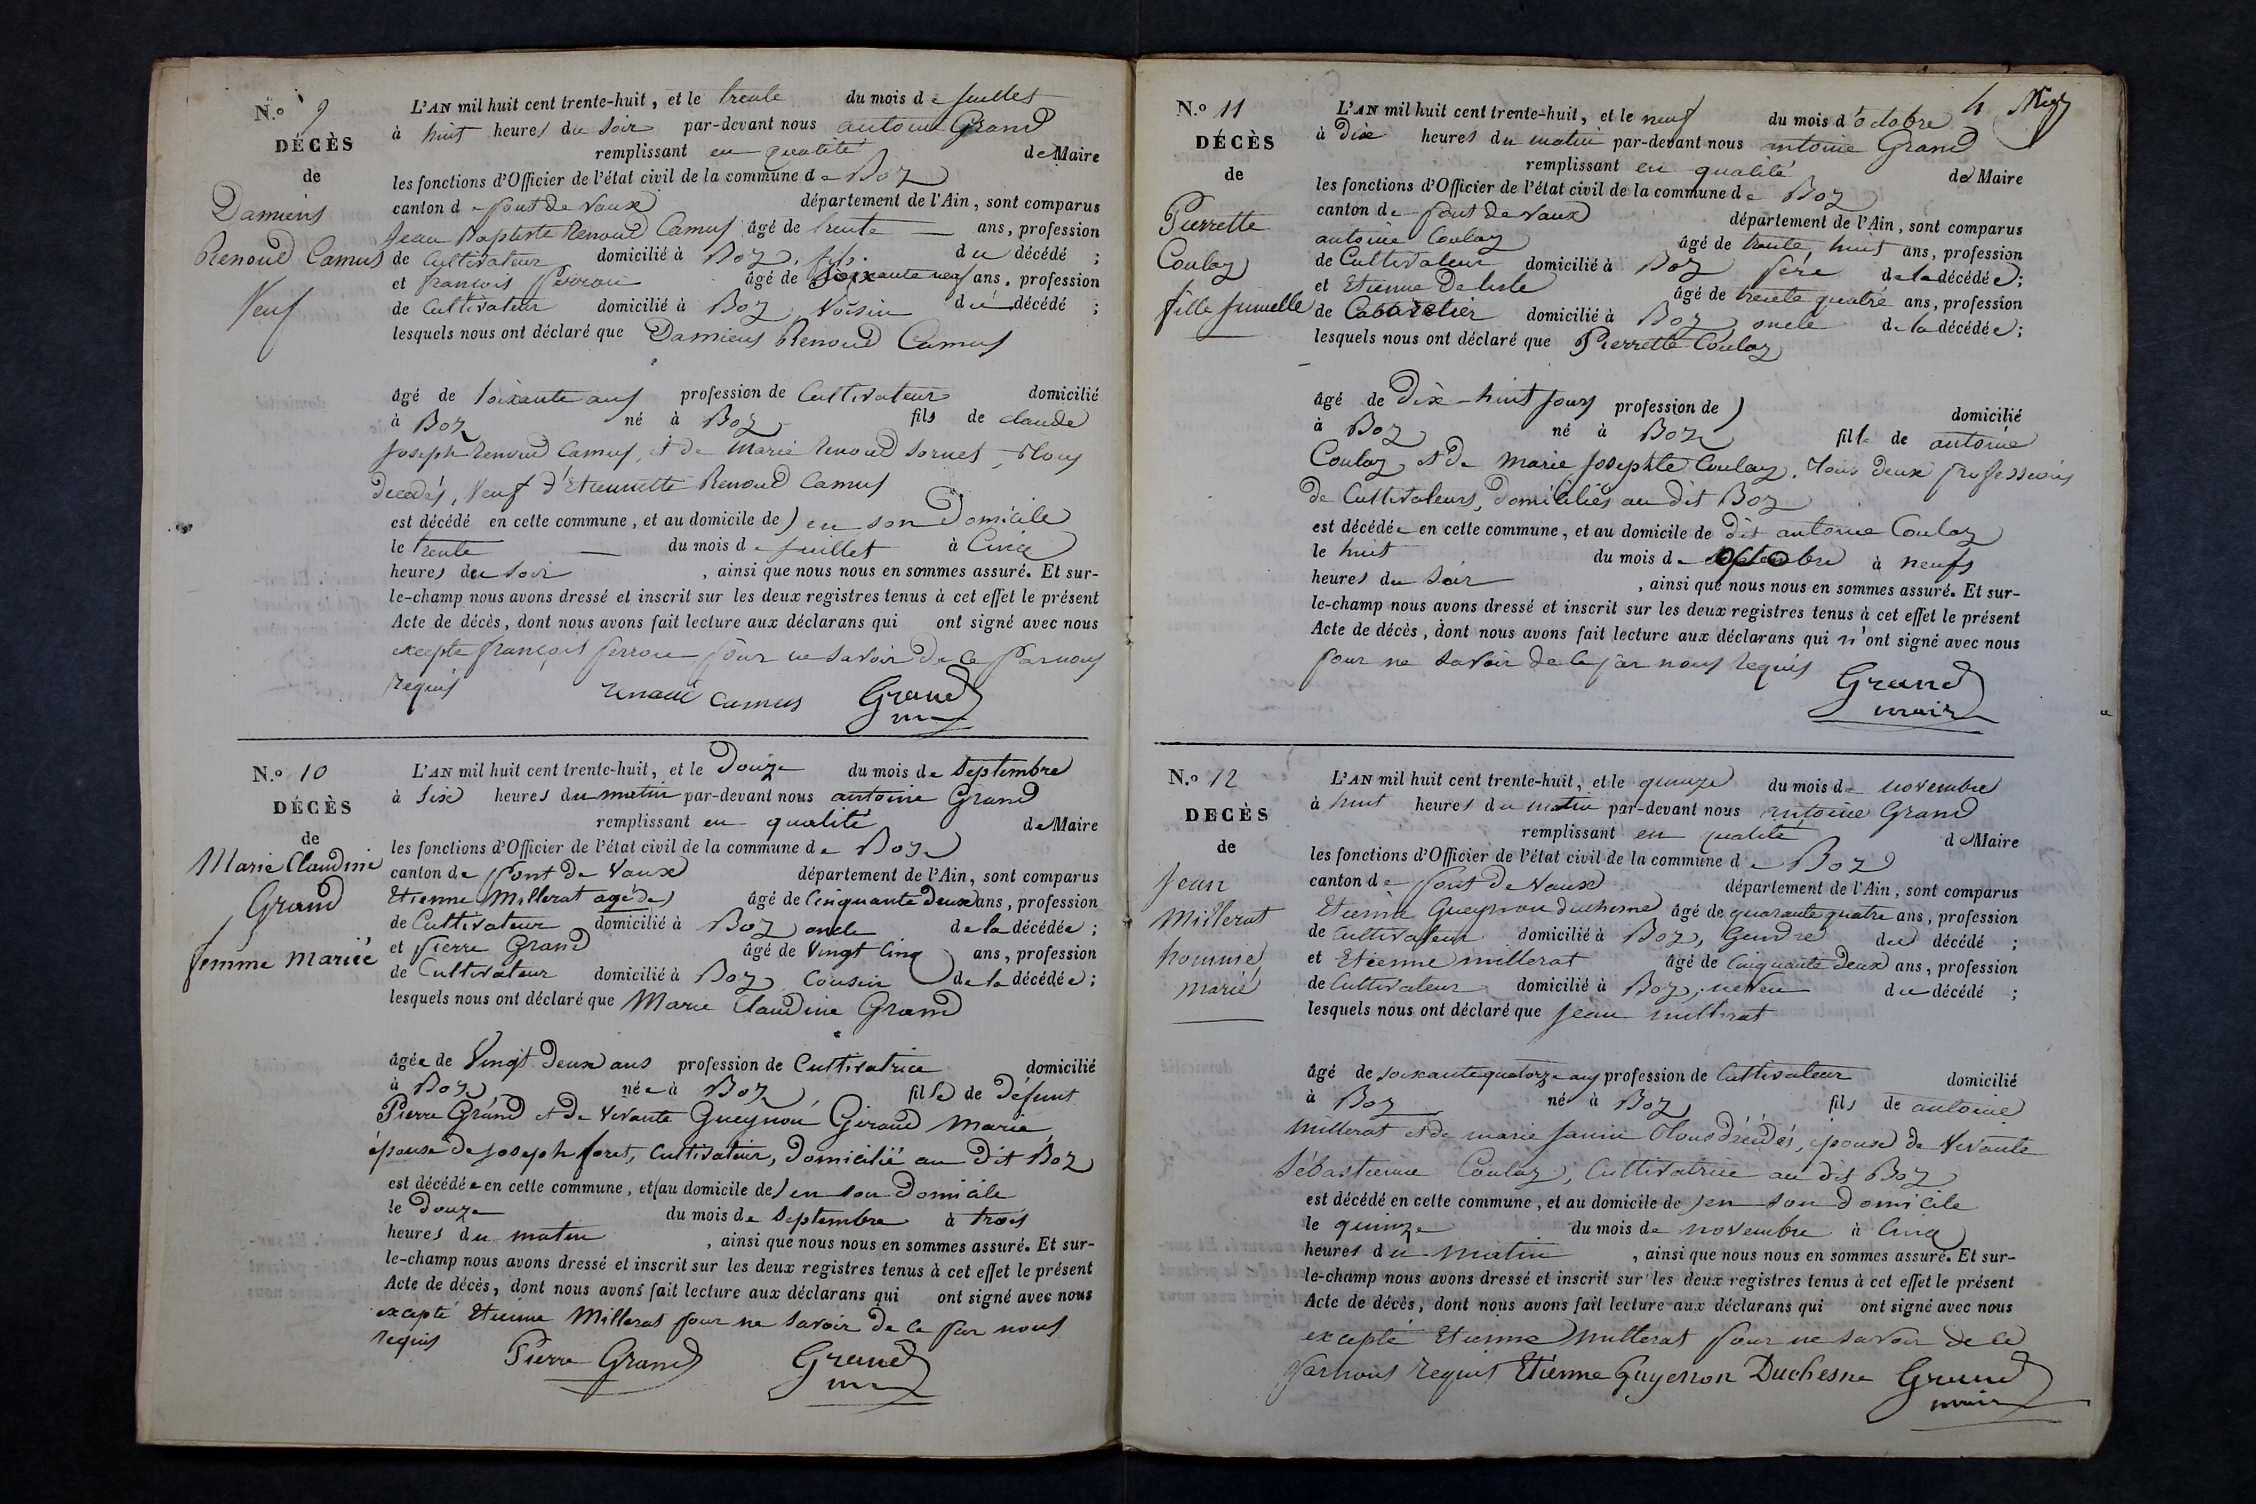 N.º 9
DÉCÈS
de
Damiens
Renoud Camus
Veuf
L'AN mil huit cent trente-huit, et le trente du mois de Juillet
à huit heures du Soir par-devant nous antoine Grand
remplissant en qualité de Maire
les fonctions d'Officier de l'état civil de la commune de Boz
canton de Pont de Vaux département de l'Ain, sont comparus
Jean Baptiste Renoud Camus âgé de trente ans, profession
de Cultivateur domicilié à Boz, fils du décédé ;
et françois Perron âgé de Soixante neuf ans, profession
de Cultivateur domicilié à Boz Voisin du décédé ;
lesquels nous ont déclaré que Damiens Renoud Camus
âgé de Soixante ans profession de Cultivateur domicilié
à Boz né à Boz fils de claude
Joseph Renoud Camus, et de Marie Renoud Sornet, tous
decedés, Veuf d'Etiennette Renoud Camus
est décédé en cette commune, et au domicile de) en son Domicile
le trente du mois de Juillet à Cinq
heures du soir , ainsi que nous nous en sommes assuré. Et sur-
le-champ nous avons dressé et inscrit sur les deux registres tenus à cet effet le présent
Acte de décès, dont nous avons fait lecture aux déclarans qui ont signé avec nous
excepté françois perron pour ne savoir de ce Par nous
requis renaud camus Grand
N.º 10
DÉCÈS
de
Marie Claudine
Grand
femme Mariée
L'AN mil huit cent trente-huit, et le Douze du mois de Septembre
à Six heures du matin par-devant nous antoine Grand
remplissant en qualité de Maire
les fonctions d'Officier de l'état civil de la commune de Boz
canton de Pont de Vaux département de l'Ain, sont comparus
Etienne Millerat agé de) âgé de Cinquante Deux ans, profession
de Cultivateur domicilié à Boz oncle de la décédée ;
et Pierre Grand âgé de Vingt Cinq ans, profession
de Cultivateur domicilié à Boz Cousin de la décédée ;
lesquels nous ont déclaré que Marie Claudine Grand
âgée de Vingt Deux ans profession de Cultivatrice domicilié
à Boz née à Boz fille de Défunt
Pierre Grand et de Vivante Gueynon Giraud Marie
épouse de Joseph foret, Cultivateur, Domicilié au Dit Boz
est décédée en cette commune, et (au domicile de) en son Domicile
le Douze du mois de Septembre à trois
heures du matin , ainsi que nous nous en sommes assuré. Et sur-
le-champ nous avons dressé et inscrit sur les deux registres tenus à cet effet le présent
Acte de décès, dont nous avons fait lecture aux déclarans qui ont signé avec nous
excepté Etienne Millerat pour ne savoir de ce par nous
requis Pierre Grand Grand
4
N.º 11
DÉCÈS
de
Pierrette
Coulaz
fille Jumelle
L'AN mil huit cent trente-huit, et le neuf du mois d'octobre
à Dix heures du matin par-devant nous antoine Grand
remplissant en qualité de Maire
les fonctions d'Officier de l'état civil de la commune de Boz
canton de Pont de Vaux département de l'Ain, sont comparus
antoine Coulaz âgé de trente huit ans, profession
de Cultivateur domicilié à Boz père de la décédée ;
et Etienne Delisle âgé de trente quatre ans, profession
de Cabaretier domicilié à Boz oncle de la décédée ;
lesquels nous ont déclaré que Pierrette Coulaz
âgé de Dix-huit Jours profession de ) domicilié
à Boz né à Boz fille de antoine
Coulaz, et de Marie Josephte Coulaz. Tous Deux professions
De Cultivateurs, Domiciliés au dit Boz
est décédée en cette commune, et au domicile de dit antoine Coulaz
le huit du mois de octobre à neufs
heures du Soir , ainsi que nous nous en sommes assuré. Et sur-
le-champ nous avons dressé et inscrit sur les deux registres tenus à cet effet le présent
Acte de décès, dont nous avons fait lecture aux déclarans qui n'ont signé avec nous
pour ne savoir de ce par nous requis Grand
maire
N.º 12
DECÈS
de
Jean
Millerat
homme
marié
L'AN mil huit cent trente-huit, et le quinze du mois de novembre
à huit heures du matin par-devant nous antoine Grand
remplissant en qualité de Maire
les fonctions d'Officier de l'état civil de la commune de Boz
canton de Pont de Vaux département de l'Ain, sont comparus
Etienne Gueynon duchesne âgé de quarante quatre ans, profession
de Cultivateur domicilié à Boz, Gendre du décédé ;
et Etienne millerat âgé de Cinquante Deux ans, profession
de Cultivateur domicilié à Boz, neveu du décédé ;
lesquels nous ont déclaré que Jean millerat
âgé de soixante quatorze ans profession de Cultivateur domicilié
à Boz né à Boz fils de antoine
Millerat et de marie Janin tous décédés, épouse de Vivante
Sébastienne Coulaz, Cultivatrice au dit Boz
est décédé en cette commune, et au domicile de ) en son Domicile
le quinze du mois de novembre à Cinq
heures du matin , ainsi que nous nous en sommes assuré. Et sur-
le-champ nous avons dressé et inscrit sur les deux registres tenus à cet effet le présent
Acte de décès, dont nous avons fait lecture aux déclarans qui ont signé avec nous
excepté Etienne Millerat pour ne savoir de ce
par nous requis Etienne Guyenon Duchesne Grand
maire